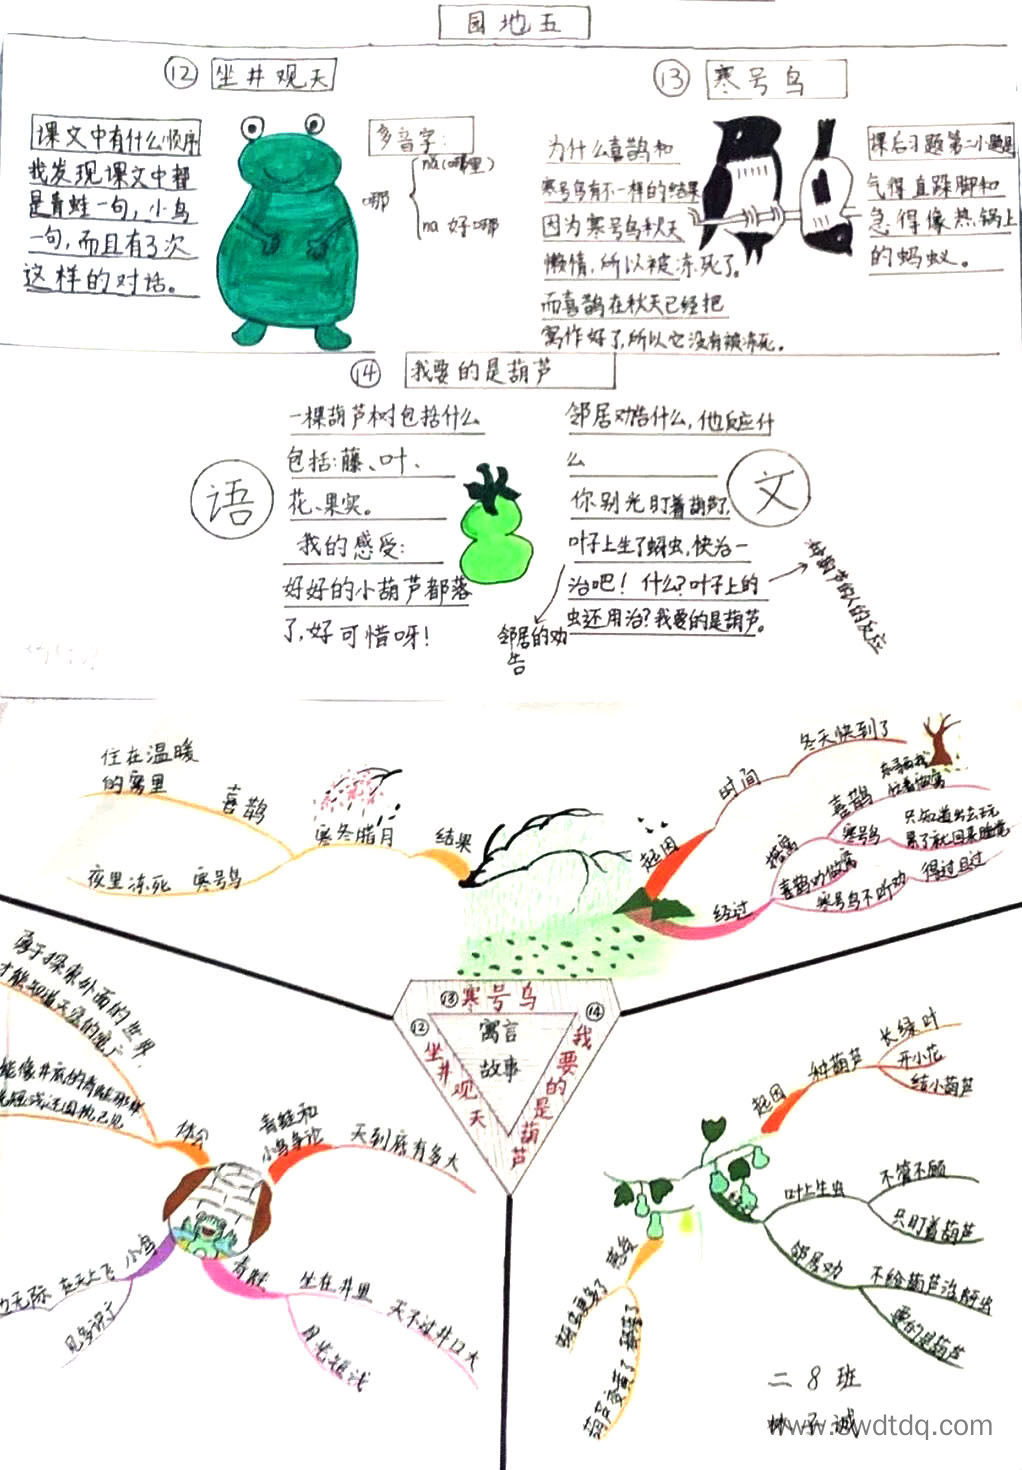 园地五
⑫ 坐井观天
课文中有什么顺序
我发现课文中都
是青蛙一句，小鸟
一句，而且有3次
这样的对话。
多音字：
哪
nǎ（哪里）
na 好哪
⑬ 寒号鸟
为什么喜鹊和
寒号鸟有不一样的结果
因为寒号鸟秋天
懒惰，所以被冻死了。
而喜鹊在秋天已经把
窝作好了，所以它没有被冻死。
课后习题第二小题是
气得直跺脚和
急得像热锅上
的蚂蚁。
⑭ 我要的是葫芦
语
一棵葫芦树包括什么
包括：藤、叶、
花、果实。
我的感受：
好好的小葫芦都落
了，好可惜呀！
邻居劝告什么，他反应什
么
你别光盯着葫芦了，
叶子上生了蚜虫，快治一
治吧！什么？叶子上的
虫还用治？我要的是葫芦。
邻居的劝
告
文
种葫芦的人的反应
住在温暖
的窝里
喜鹊
夜里冻死 寒号鸟
寒冬腊月
结果
起因
时间
冬天快到了
经过
搭窝
喜鹊
寒号鸟
只知道出去玩
累了就回来睡觉
喜鹊劝做窝
寒号鸟不听劝
得过且过
⑬ 寒号鸟
⑫ 坐井观天
⑭ 我要的是葫芦
寓言
故事
勇于探索外面的世界，
才能知道天空的宽广
能像井底的青蛙那样
体会
青蛙和
小鸟争论
天到底有多大
小鸟
在天上飞
边无际
见多识广
青蛙
坐在井里
天不过井口大
目光短浅
起因
种葫芦
长绿叶
开小花
结小葫芦
叶上生虫
不管不顾
只盯着葫芦
邻居劝
不给葫芦治蚜虫
要的是葫芦
蚜虫更多了
葫芦变黄了
二8班
林子诚
www.swdtdq.com